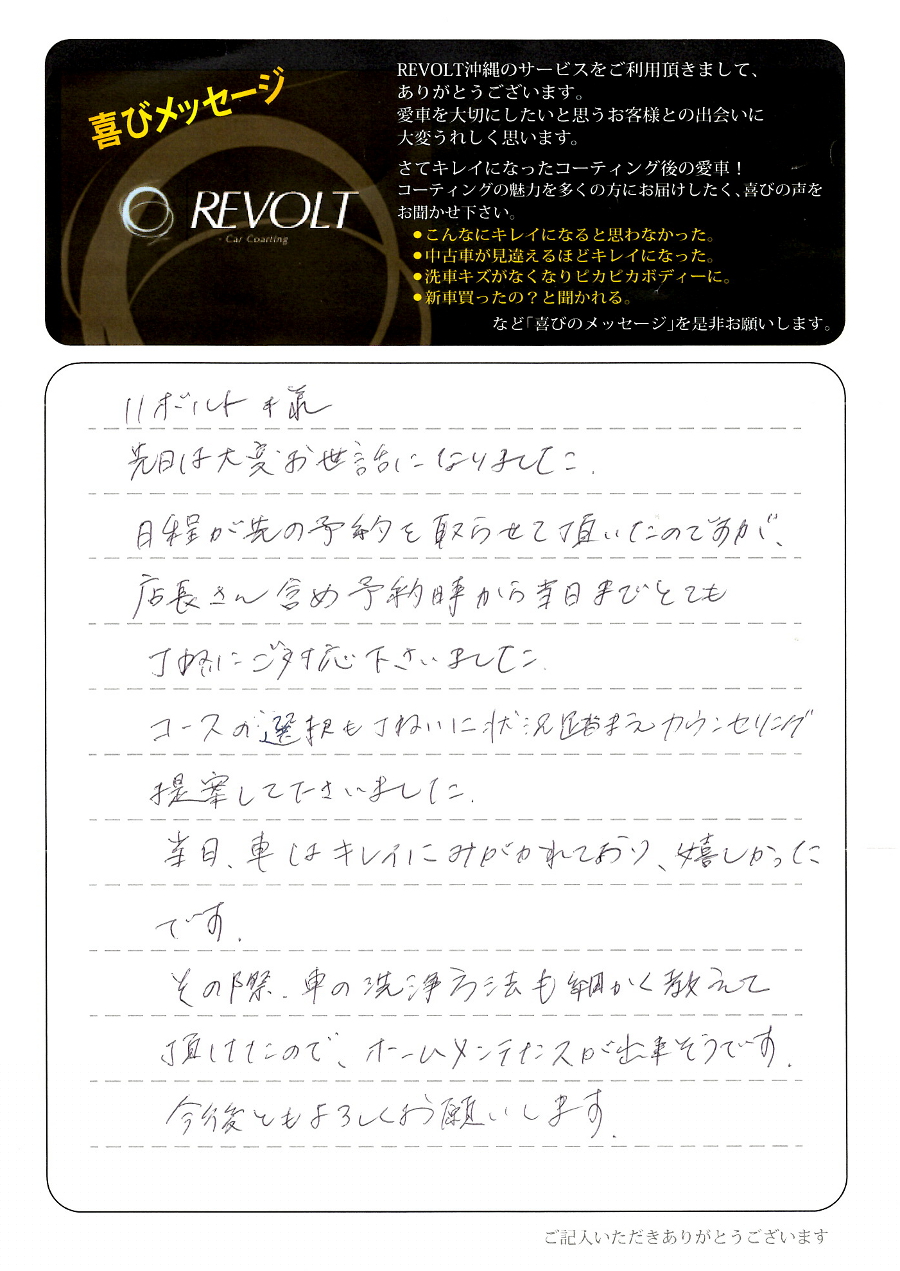 喜びメッセージ
REVOLT
Car Coarting
REVOLT沖縄のサービスをご利用頂きまして、
ありがとうございます。
愛車を大切にしたいと思うお客様との出会いに
大変うれしく思います。
さてキレイになったコーティング後の愛車！
コーティングの魅力を多くの方にお届けしたく、喜びの声を
お聞かせ下さい。
●こんなにキレイになると思わなかった。
●中古車が見違えるほどキレイになった。
●洗車キズがなくなりピカピカボディーに。
●新車買ったの？と聞かれる。
など「喜びのメッセージ」を是非お願いします。
リボルト様
先日は大変お世話になりました.
日程が先の予約を取らせて頂いたのですが、
店長さん含め予約時から当日までとても
丁寧にご対応下さいました.
コースの選択も丁ねいに状況踏まえカウンセリング
提案して下さいました.
当日、車はキレイにみがかれており、嬉しかった
です.
その際、車の洗浄方法も細かく教えて
頂けたので、ホームメンテナンスが出来そうです.
今後ともよろしくお願いします.
ご記入いただきありがとうございます